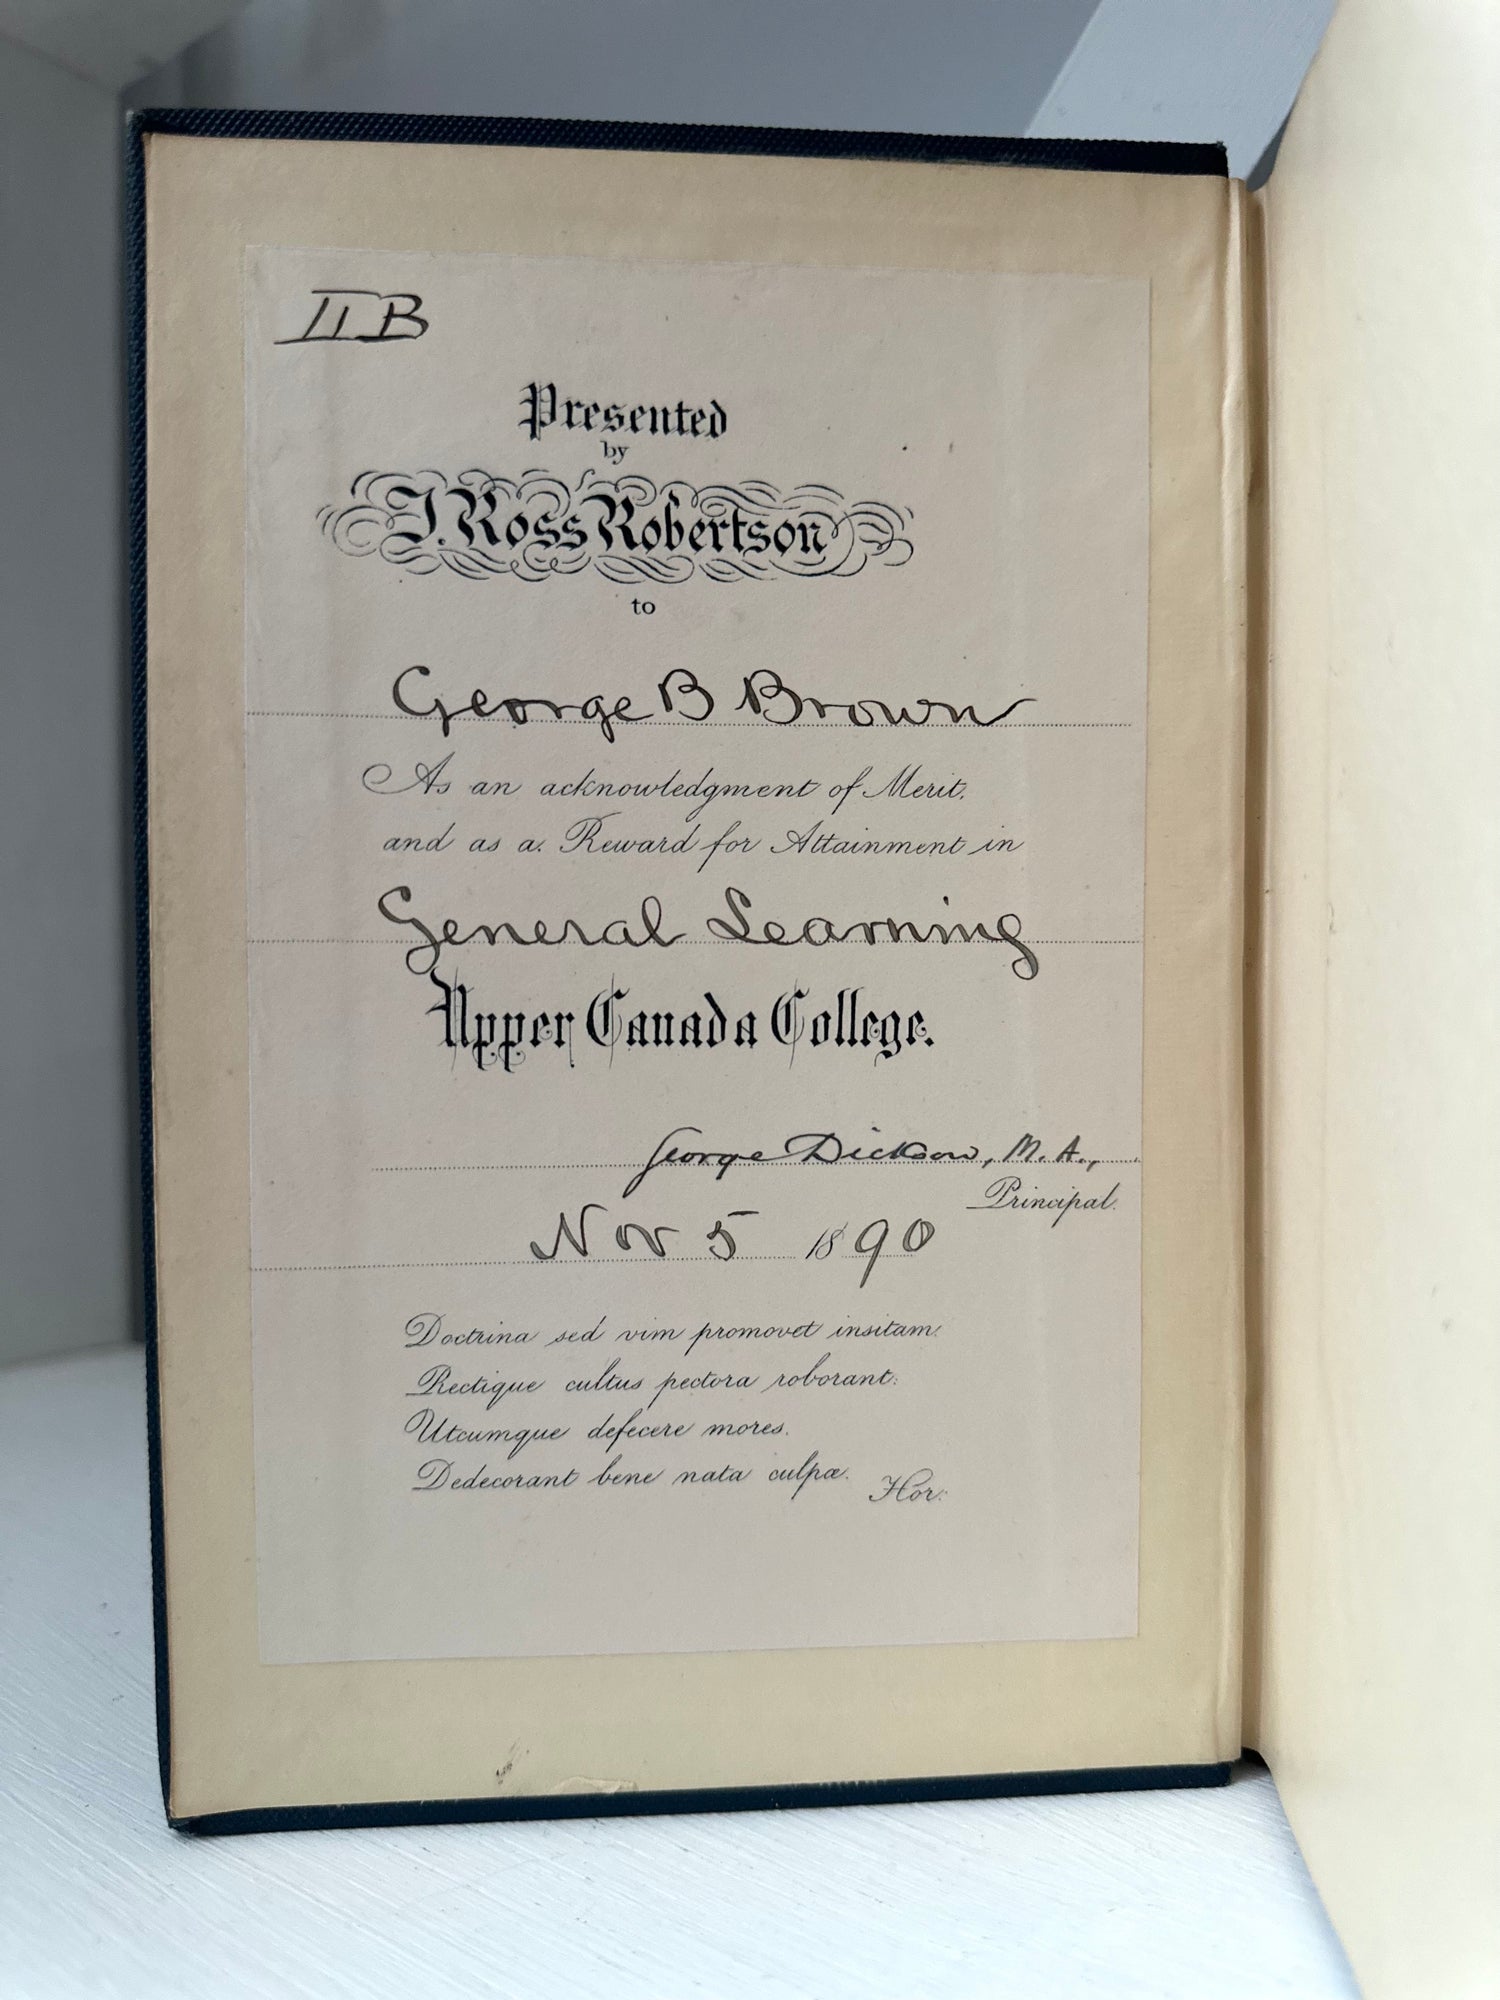 II B
Presented
by
J. Ross Robertson
to
George B Brown
As an acknowledgment of Merit.
and as a. Reward for Attainment in
General Learning
Upper Canada College.
George Dickson, M. A.,
Principal.
Nov 5 1890
Doctrina sed vim promovet insitam.
Rectique cultus pectora roborant:
Utcumque defecere mores.
Dedecorant bene nata culpæ.
Hor: